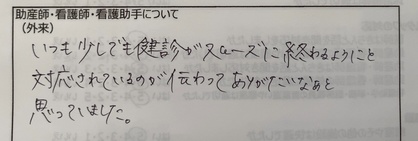 助産師・看護師・看護助手について
（外来）
いつも少しでも健診がスムーズに終わるようにと
対応されているのが伝わってありがたいなぁと
思っていました。